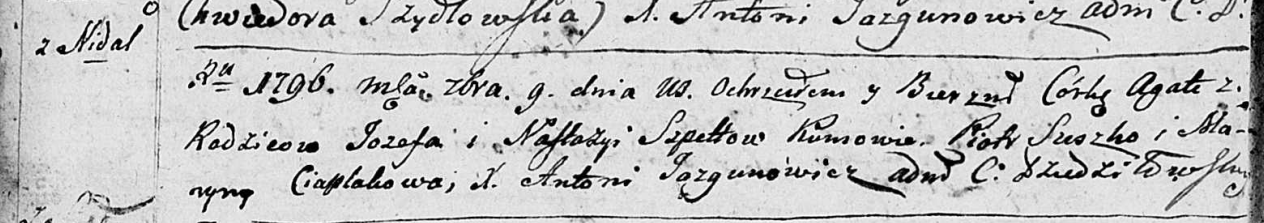 (Kwiedora Szydłowska) X. Antoni Jazgunowicz adm C. D.
z Nidal
Ru 1796. mca 7bra. 9. dnia us. Ochrzciłem y Bierzm Córkę Agatę z.
Rodzicow Jozefa i Nastazyi Szpettow Kumowie. Piotr Suszko i Ma-
ryna Ciaplakowa, X. Antoni Jazgunowicz admr C: Dziedziłowski